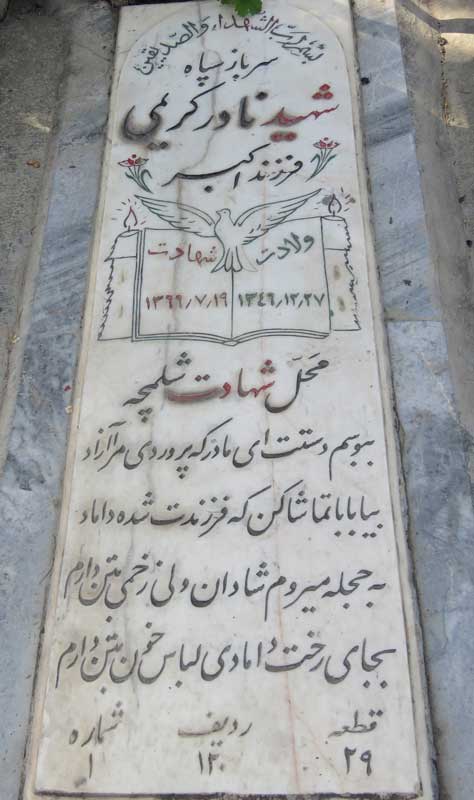 بسم رب الشهداء والصدیقین
سرباز سپاه
شهید نادر کریمی
فرزند اکبر
ولادت شهادت
۱۳۴۶٫۱۲٫۲۷ ۱۳۶۶٫۷٫۱۹
محل شهادت شلمچه
ببوسم دستت ای مادر که پروردی مرا آزاد
بیا بابا تماشا کن که فرزندت شده داماد
به حجله میروم شادان ولی زخمی بتن دارم
بجای رخت دامادی لباس خون بتن دارم
قطعه ردیف شماره
۲۹ ۱۲۰ ۱